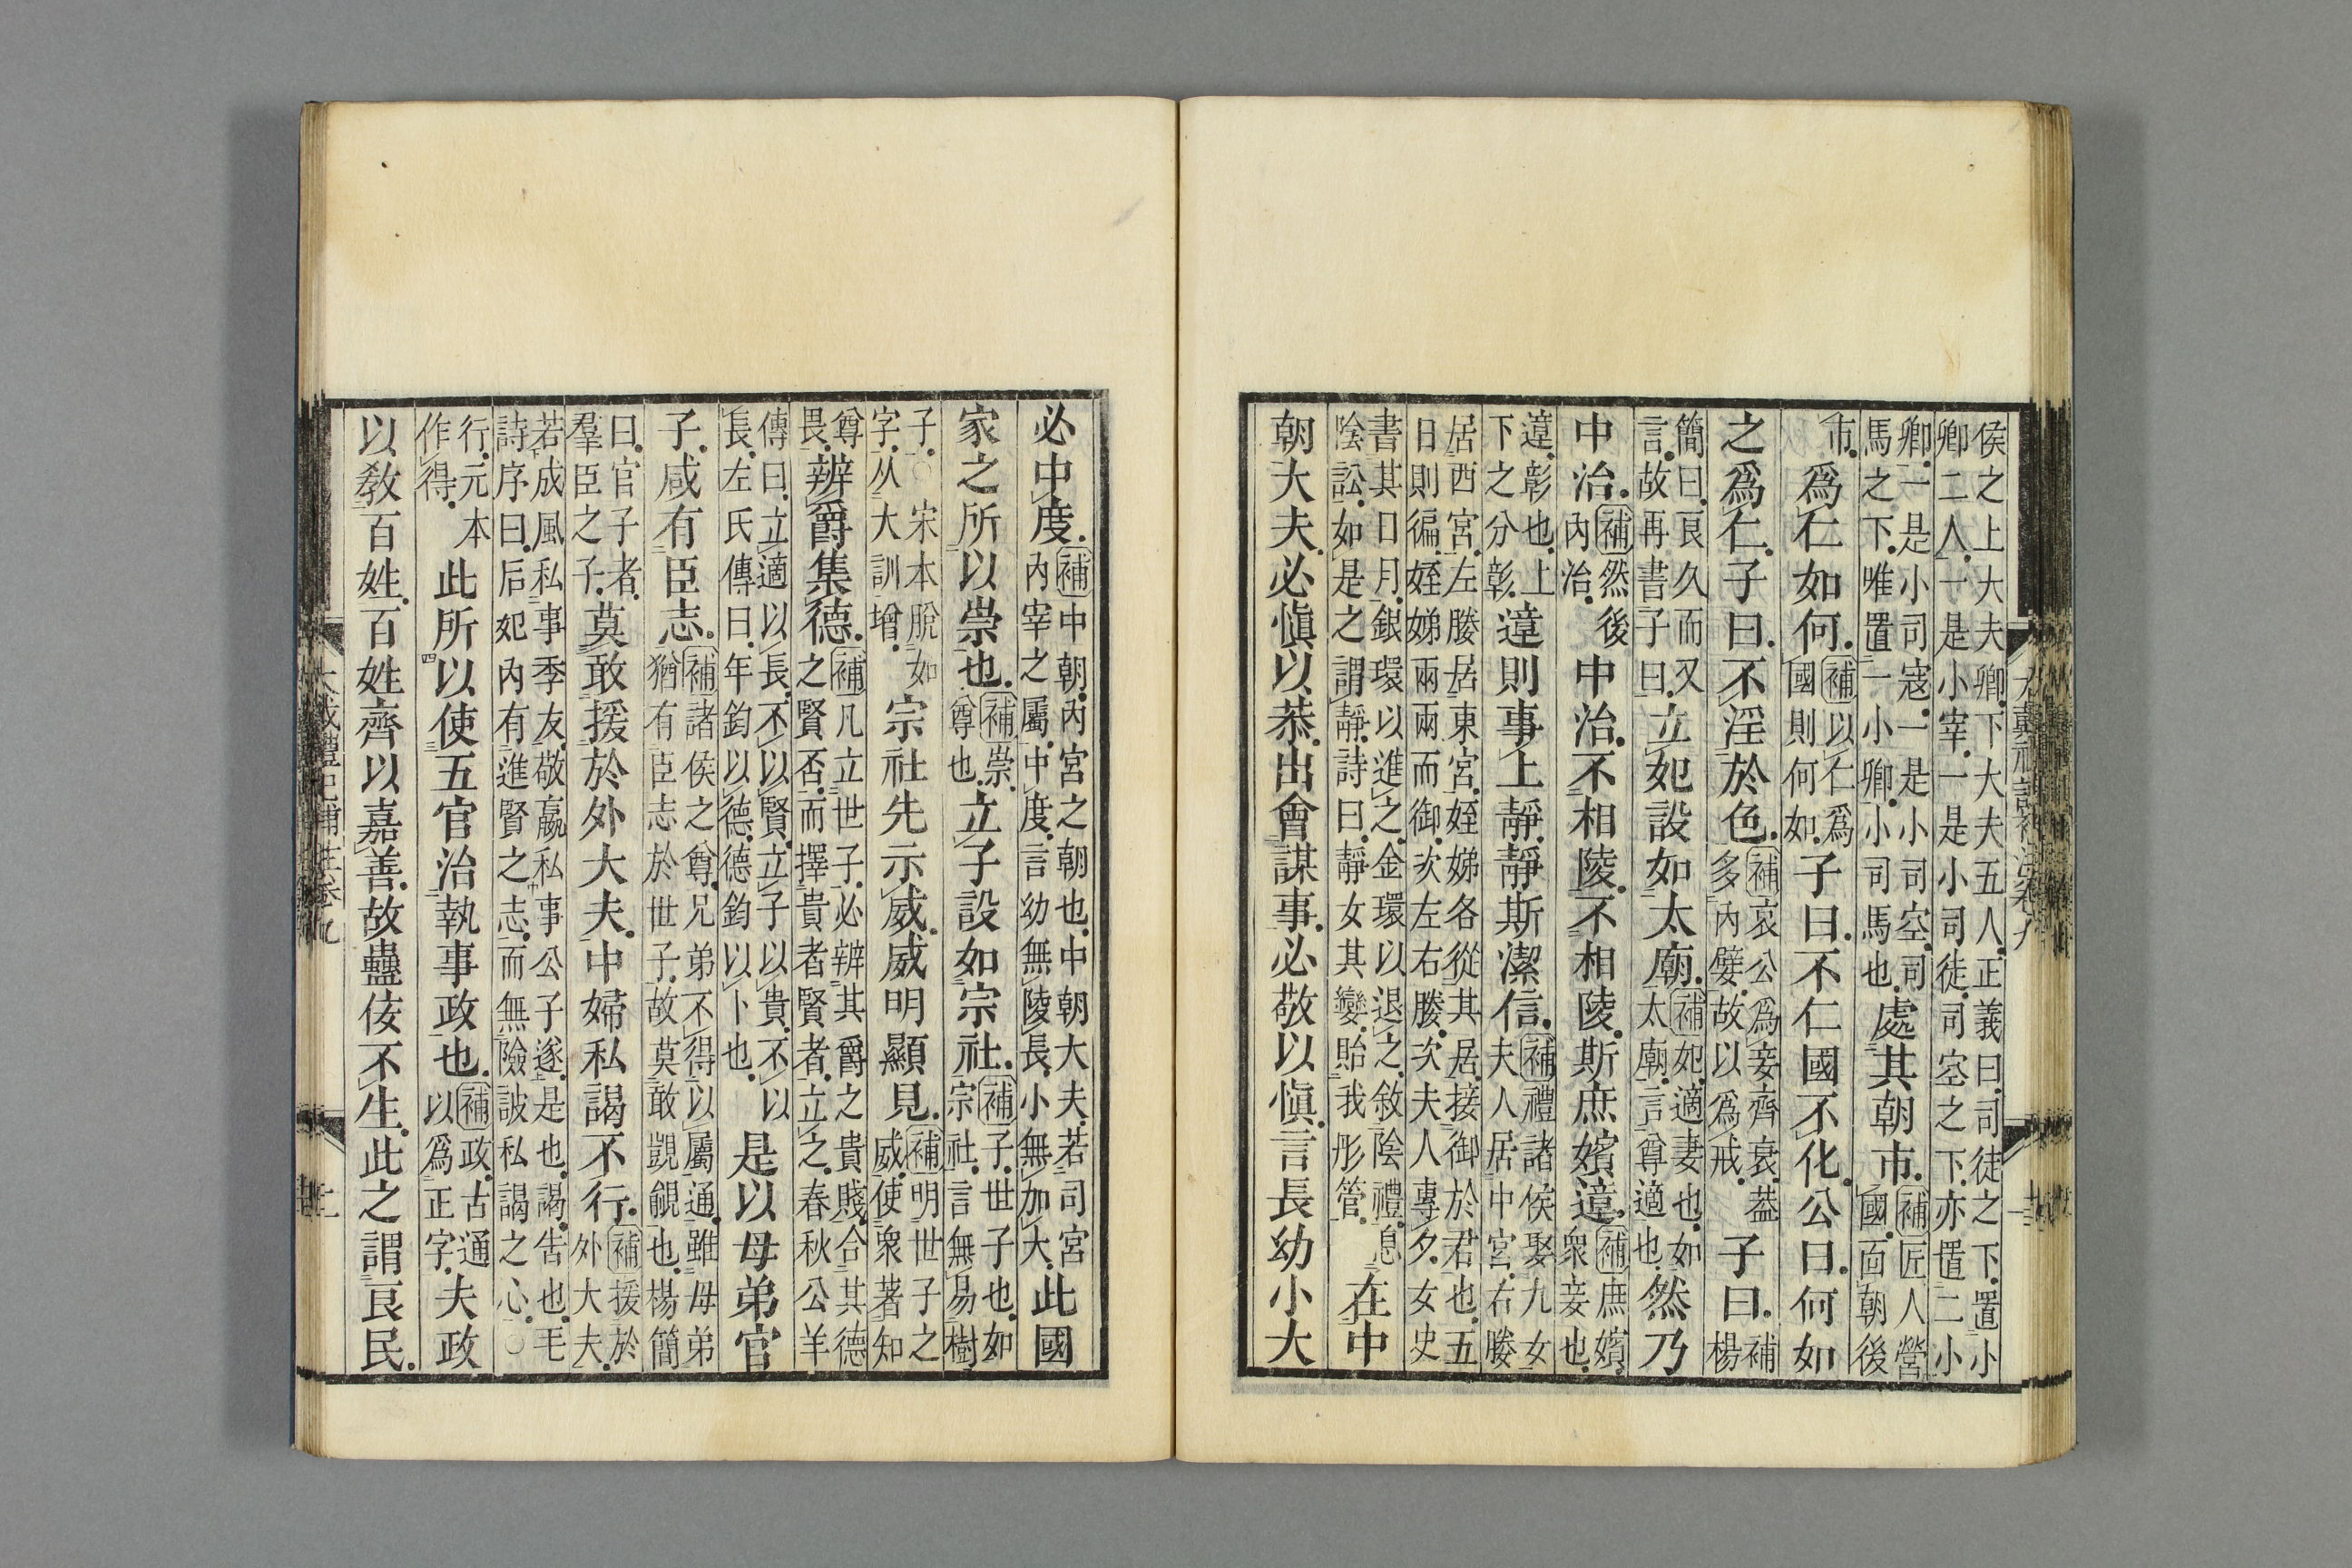 侯之上大夫卿。下大夫五人。正義曰。司徒之下。置小
卿二人。一是小宰。一是小司徒。司空之下。亦置二小
卿。一是小司寇。一是小司空。司馬之下。唯置一小卿。小司馬也。處其朝市。補匠人營國。面朝後
市。爲仁如何。補以仁爲國則何如。子曰。不仁國不化。公曰。何如
之爲仁。子曰。不淫於色。補哀公爲妾齊衰。葢多內嬖。故以爲戒。子曰。補楊
簡曰。艮久而又言。故再書子曰。立妃設如太廟。補妃。適妻也。如太廟。言尊適也。然乃
中治。補然後內治。中治。不相陵。不相陵。斯庶嬪遧。補庶嬪。衆妾也。
遧。彰也。上下之分彰。遧則事上靜。靜斯潔信。補禮諸侯娶九女夫人居中宮。右媵
居西宮。左媵居東宮。姪娣各從其居。接御於君也。五
日則徧。姪娣兩兩而御。次左右媵。次夫人專夕。女史
書其日月。銀環以進之。金環以退之。敘陰禮。息陰訟。如是之謂靜。詩曰。靜女其孌。貽我彤管。在中
朝大夫。必愼以恭。出會謀事。必敬以愼。言長幼小大
必中度。補中朝。內宮之朝也。中朝大夫。若司宮內宰之屬。中度。言幼無陵長。小無加大。此國
家之所以崇也。補崇。尊也。立子設如宗社。補子。世子也。如宗社。言無易樹
子。○宋本脫如字。从大訓增。宗社先示威。威明顯見。補明世子之威。使衆著知
尊畏。辨爵集德。補凡立世子。必辨其爵之貴賤。合其德之賢否。而擇貴者賢者。立之。春秋公羊
傳曰。立適以長。不以賢。立子以貴。不以長。左氏傳曰。年鈞以德。德鈞以卜也。是以母弟官
子。咸有臣志。補諸侯之尊。兄弟不得以屬通。雖母弟猶有臣志於世子。故莫敢覬覦也。楊簡
曰。官子者。羣臣之子。莫敢援於外大夫。中婦私謁不行。補援於外大夫。
若成風私事季友。敬嬴私事公子遂。是也。謁。告也。毛
詩序曰。后妃內有進賢之志。而無險詖私謁之心。○
行。元本作得。此所以使五官治執事政也。補政。古通以爲正字。夫政
以敎百姓。百姓齊以嘉善。故蠱佞不生。此之謂良民。
大戴禮記補注卷九